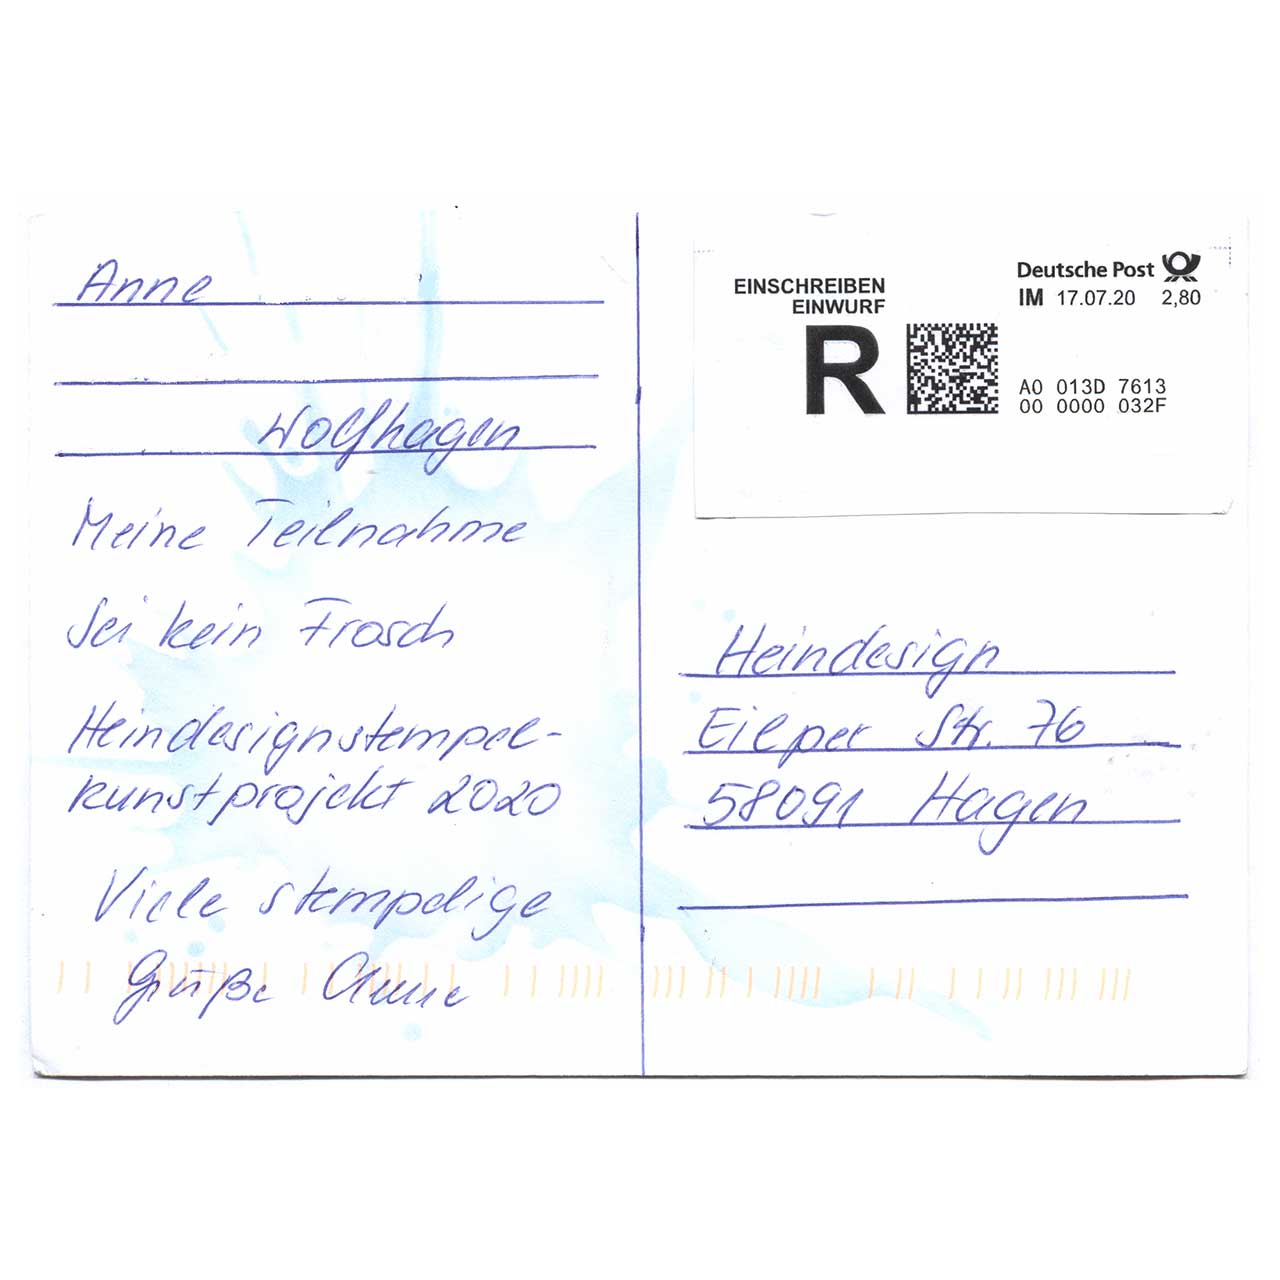 Anne
Wolfhagen
Meine Teilnahme
Sei kein Frosch
Heindesignstempel-
kunstprojekt 2020
Viele stempelige
Grüße Anne
EINSCHREIBEN
EINWURF
R
Deutsche Post
IM 17.07.20 2,80
A0 013D 7613
00 0000 032F
Heindesign
Eilper Str. 76
58091 Hagen